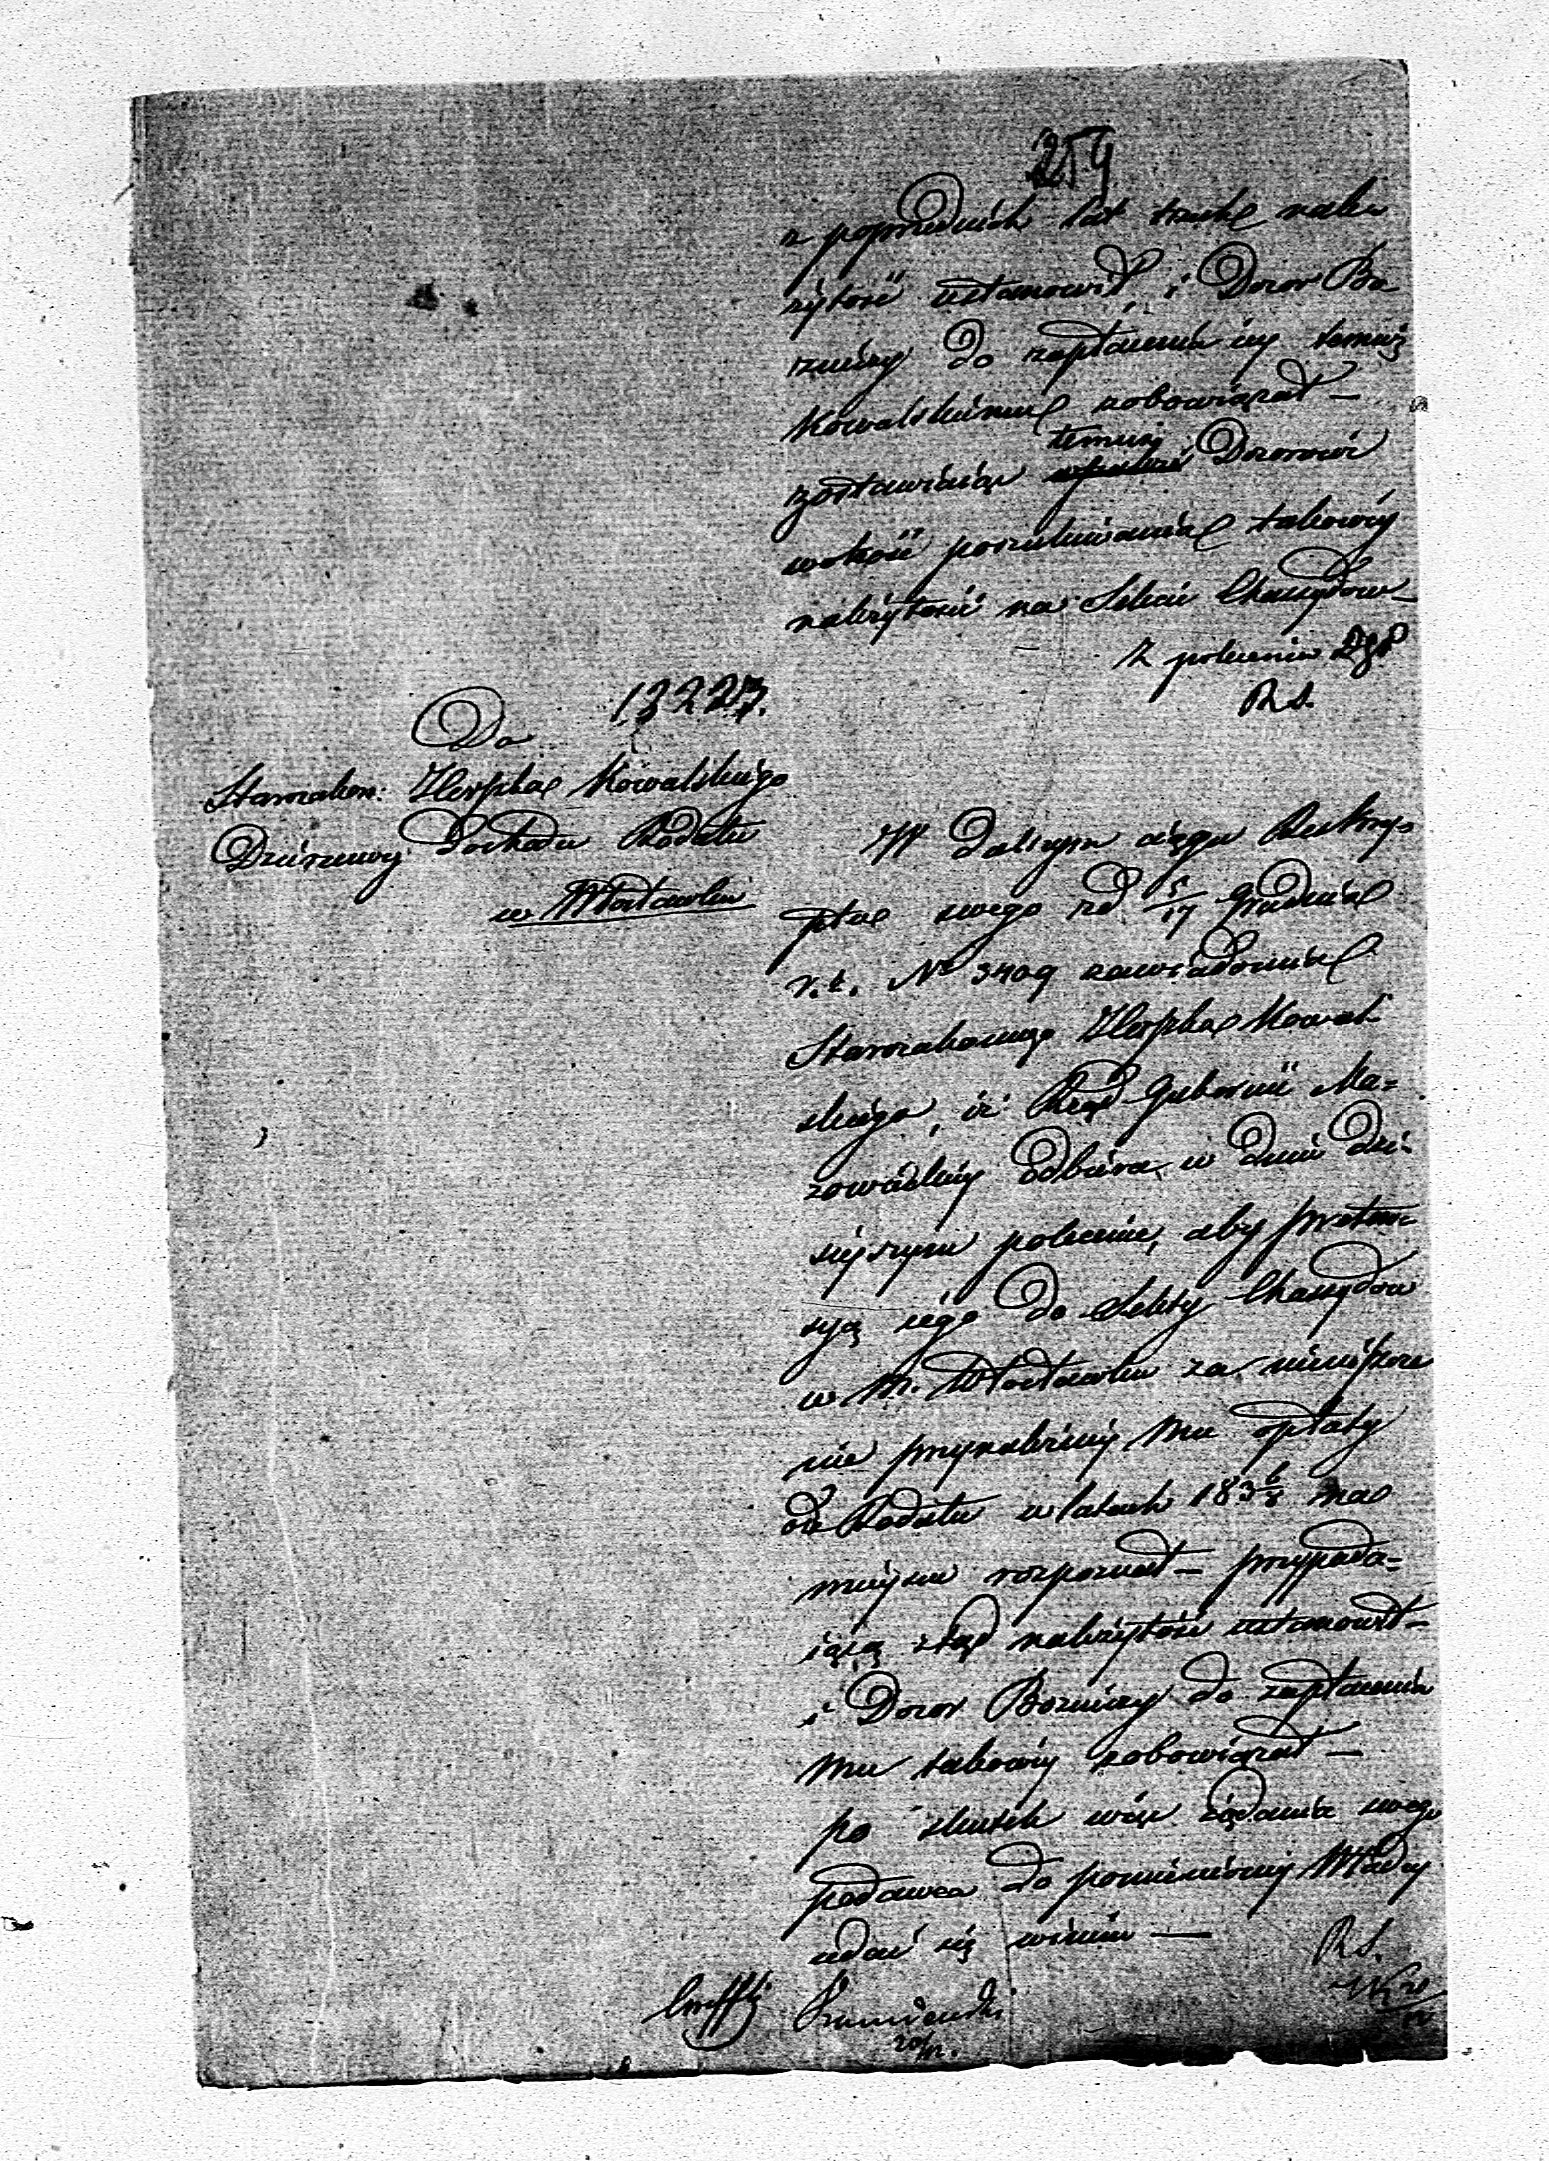 259
z poprzednich lat tuteyż nale
żytość ustanowił, i Dozor Bo
żniczy do zapłacenia iey temuż
Kowalskiemu zobowiązał —
zostawiaiąc temuż Dozorowi
wolność poszukiwania takowey
należytości na Sekcie Chassydów —
Z polecenia
R. S.
13227.
Do
Starozakon: Herszka Kowalskiego
Dzierżawcy Dochodu Kodatu
w Włocławku
W dalszym ciągu Reskryp
ptu swego z d 5/17 Grudnia
r. t. No 3409 zawiadamia
Starozakonnego Herszka Kowal
skiego, iż Rząd Gubernii Ma=
zowieckiey odbiera w dniu dzi=
sieyszym polecenie, aby preten
syą iego do Sekty Chassydów
w M. Włocławku za nieuiszcze
nie przynależney mu opłaty
od Kodatu w latach 183 6/8 na
mieyscu rozpoznał — przypada=
iącą ztąd należytość ustanowił —
i Dozor Bozniczy do zapłacenia
mu takowey zobowiązał —
po skutek więc żądania swego
podawca do pomienioney Władzy
udać się winien —
R. S.
20/12.